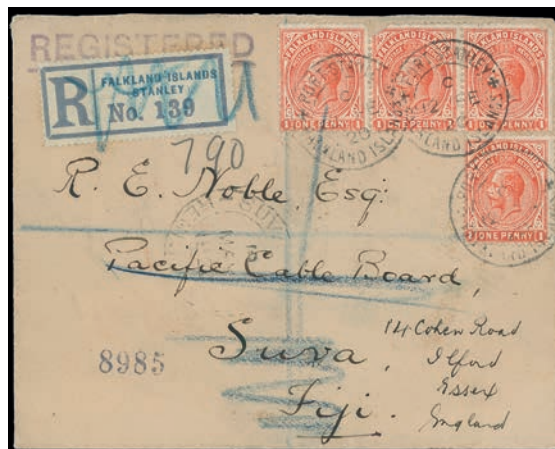 REGISTERED
R
FALKLAND ISLANDS
STANLEY
No. 139
FALKLAND ISLANDS
1 ONE PENNY 1
FALKLAND ISLANDS
ONE PENNY
FALKLAND ISLANDS
ONE PENNY 1
ONE PENNY 1
790
R. E. Noble, Esq:
Pacific Cable Board,
Suva,
Fiji.
14 Cohen Road
Ilford
Essex
England
8985